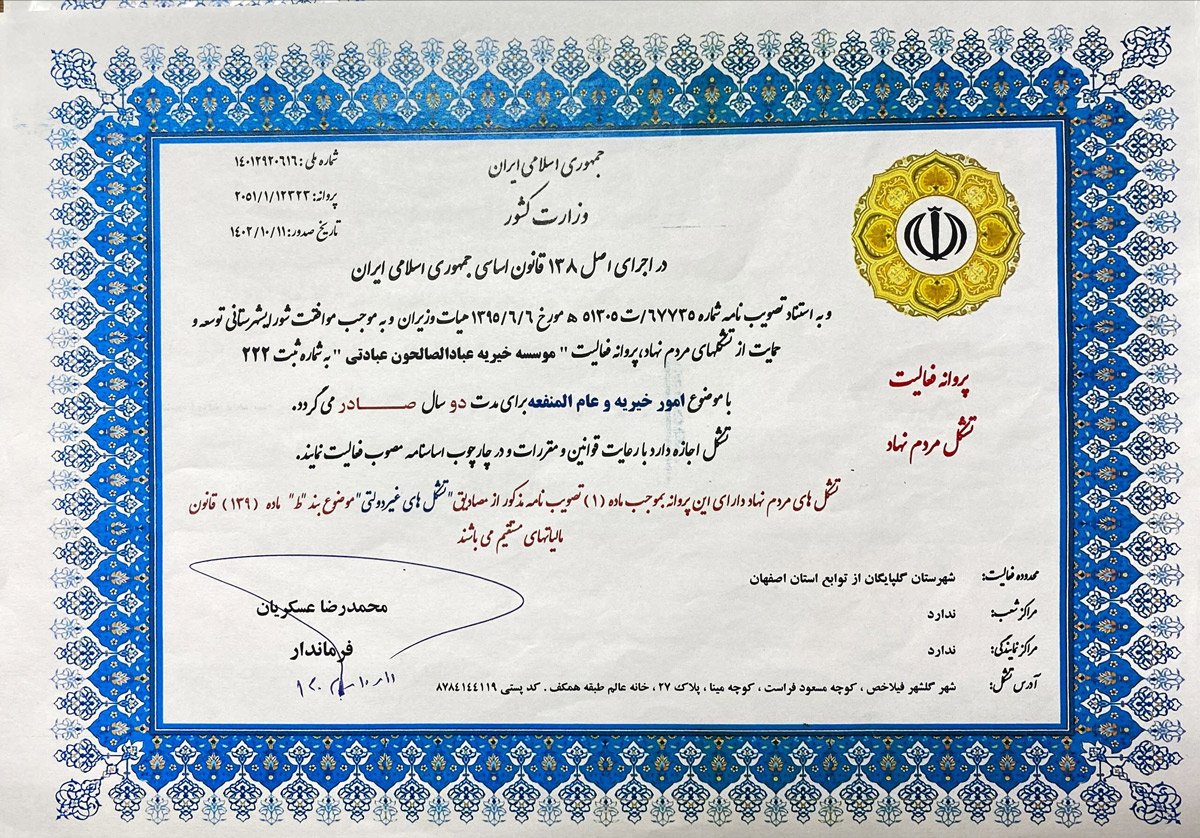 جمهوری اسلامی ایران
وزارت کشور
شماره ملی: ۱۴۰۱۳۹۲۰۶۱۶
پروانه: ۲۰۵۱/۱/۱۲۳۲۳
تاریخ صدور: ۱۴۰۲/۱۰/۱۱
در اجرای اصل ۱۳۸ قانون اساسی جمهوری اسلامی ایران
و به استناد تصویب نامه شماره ۶۷۷۳۵/ت ۵۱۳۰۵ ه مورخ ۱۳۹۵/۶/۶ هیات وزیران و به موجب موافقت شورای شهرستانی توسعه و
حمایت از تشکلهای مردم نهاد، پروانه فعالیت " موسسه خیریه عبادالصالحون عبادتی " به شماره ثبت ۲۲۲
با موضوع امور خیریه و عام المنفعه برای مدت دو سال صــــادر می گردد.
تشکل اجازه دارد با رعایت قوانین و مقررات و در چارچوب اساسنامه مصوب فعالیت نمایند.
پروانه فعالیت
تشکل مردم نهاد
تشکل های مردم نهاد دارای این پروانه بموجب ماده (۱) تصویب نامه مذکور از مصادیق "تشکل های غیردولتی" موضوع بند "ط" ماده (۱۳۹) قانون
مالیاتهای مستقیم می باشند
محدوده فعالیت: شهرستان گلپایگان از توابع استان اصفهان
مراکز شعب: ندارد
مراکز نمایندگی: ندارد
آدرس تشکل: شهر گلشهر فیلاخص ، کوچه مسعود فراست ، کوچه مینا ، پلاک ۲۷ ، خانه عالم طبقه همکف . کد پستی ۸۷۸۴۱۴۴۱۱۹
محمدرضا عسکریان
فرماندار